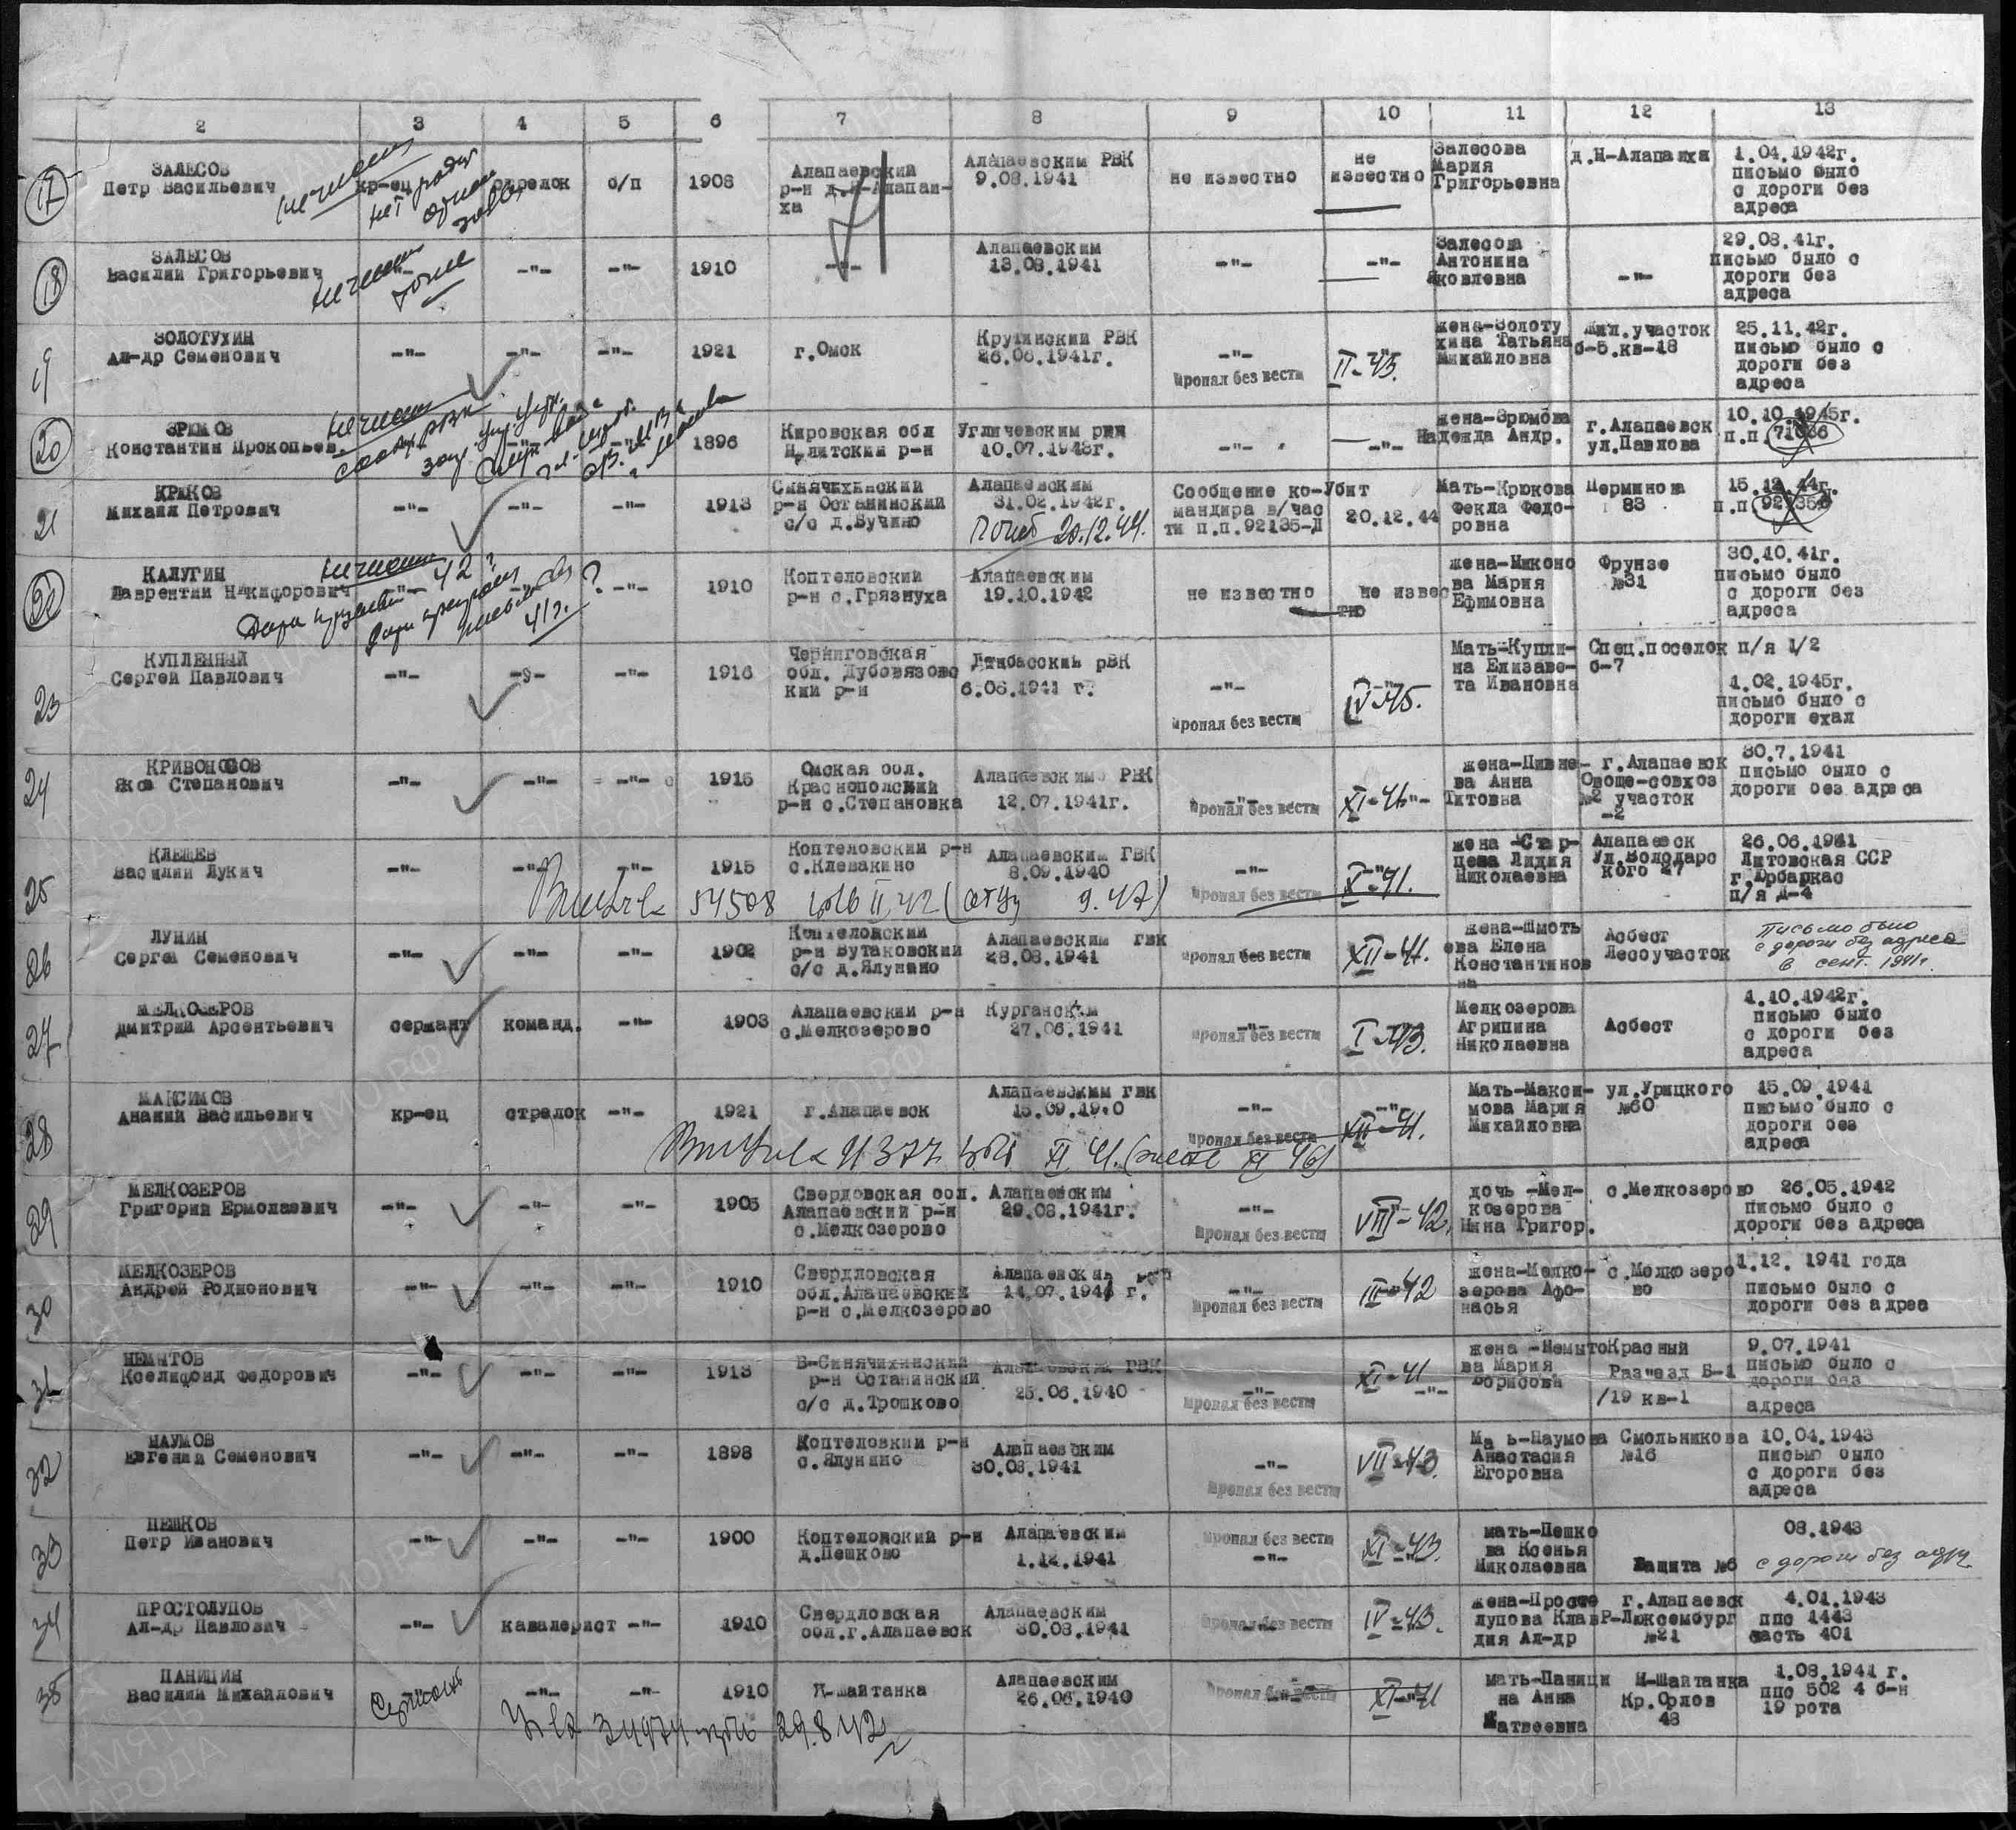 2 3 4 5 6 7 8 9 10 11 12 13
17 ЗАЛЕСОВ
Петр Васильевич кр-ец стрелок б/п 1908
Алапаевский
р-н д.Н-Алапаи-
ха
Алапаевским РВК
9.08.1941
не известно
не
известно
Залесова
Мария
Григорьевна
д.Н-Алапаиха
1.04.1942г.
письмо было
с дороги без
адреса
18 ЗАЛЕСОВ
Василий Григорьевич -"- -"- -"- 1910 -"-
Алапаевским
13.08.1941
-"- -"-
Залесова
Антонина
Яковлевна
-"-
29.08.41г.
письмо было с
дороги без
адреса
19 ЗОЛОТУХИН
Ал-др Семенович -"- -"- -"- 1921 г.Омск
Крутинский РВК
26.06.1941г.
-"-
пропал без вести
II-43.
жена-Золоту
хина Татьяна
Михайловна
жил.участок
б-5.кв-18
25.11.42г.
письмо было с
дороги без
адреса
20 ЗРЮМОВ
Константин Прокопьев. -"- -"- 1896
Кировская обл
р-н
Угличевским рвк
10.07.1943г.
-"- -"-
жена-Зрюмова
Надежда Андр.
г.Алапаевск
ул.Павлова
10.10.1945г.
п.п.
21 КРЮКОВ
Михаил Петрович -"- -"- -"- 1913
Синячихинский
р-н Останинский
с/с д.Бучино
Алапаевским
31.02.1942г.
Погиб 20.12.44.
Сообщение ко-
мандира в/час
ти п.п.92135-Д
Убит
20.12.44
Мать-Крюкова
Фекла Федо-
ровна
Перминова
83
15.12.44г.
п.п.
22 КАЛУГИН
Лаврентий Никифорович -"- -"- -"- 1910
Коптеловский
р-н с.Грязнуха
Алапаевским
19.10.1942
не известно
не извес
тно
жена-Миконо
ва Мария
Ефимовна
Фрунзе
№31
30.10.41г.
письмо было
с дороги без
адреса
23 КУПЛЕННЫЙ
Сергей Павлович -"- -"- -"- 1916
Черниговская
обл. Дубовязовс
кий р-н
6.06.1941 г.
-"-
пропал без вести
IV-45.
Мать-Купли-
на Елизаве-
та Ивановна
Спец.поселок
б-7
п/я 1/2
1.02.1945г.
письмо было с
дороги ехал
24 КРИВОНОСОВ
Яков Степанович -"- -"- -"- 1915
Омская обл.
Краснопольский
р-н с.Степановка
Алапаевским РВК
12.07.1941г.
-"-
пропал без вести
жена-Пивне-
ва Анна
Титовна
г.Алапаевск
Овоще-совхоз
№2 участок
-2
30.7.1941
письмо было с
дороги без адреса
25 КЛЕЩЕВ
Василий Лукич -"- -"- -"- 1915
Коптеловский р-н
с.Клевакино
Алапаевским ГВК
8.09.1940
54508
-"-
пропал без вести
X-41.
жена -Стар-
цева Лидия
Николаевна
Алапаевск
Ул.Володарс
кого 27
26.06.1941
Литовская ССР
г.Юрбаркас
п/я Д-4
26 ЛУНИН
Сергей Семенович -"- -"- -"- 1902
Коптеловский
р-н Бутаковский
с/с д.Ялунино
Алапаевским ГВК
28.08.1941
пропал без вести
XII-41.
жена-Шмоть
ева Елена
Константинов
на
Асбест
Лесоучасток
Письмо было
с дороги без адреса
в сент. 1941г.
27 МЕЛКОЗЕРОВ
Дмитрий Арсентьевич сержант команд. -"- 1903
Алапаевский р-н
с.Мелкозерово
Курганским
27.06.1941
-"-
пропал без вести
I-43.
Мелкозерова
Агрипина
Николаевна
Асбест
1.10.1942г.
письмо было
с дороги без
адреса
28 МАКСИМОВ
Ананий Васильевич кр-ец стрелок -"- 1921 г.Алапаевск
Алапаевским ГВК
15.09.1940
-"-
пропал без вести
XII-41.
Мать-Макси-
мова Мария
Михайловна
ул.Урицкого
№60
15.09.1941
письмо было с
дороги без
адреса
29 МЕЛКОЗЕРОВ
Григорий Ермолаевич -"- -"- -"- 1905
Свердовская обл.
Алапаевский р-н
с.Мелкозерово
Алапаевским
29.08.1941г.
-"-
пропал без вести
VIII-42.
дочь -Мел-
козерова
Нина Григор.
с.Мелкозерово
26.05.1942
письмо было с
дороги без адреса
30 МЕЛКОЗЕРОВ
Андрей Родионович -"- -"- -"- 1910
Свердловская
обл.Алапаевский
р-н с.Мелкозерово
Алапаевским
14.07.1941 г.
-"-
пропал без вести
III-42
жена-Мелко-
зерова Афо-
насья
с.Мелкозеро
во
1.12. 1941 года
письмо было с
дороги без адреа
31 НЕМЫТОВ
Кселифонд Федорович -"- -"- -"- 1913
В-Синячихинский
р-н Останинский
с/с д.Трошково
Алапаевский ГВК
25.06.1940
-"-
пропал без вести
XI-41
-"-
жена -Немыто
ва Мария
Борисова
Красный
Раз"езд Б-1
/19 кв-1
9.07.1941
письмо было с
дороги без
адреса
32 НАУМОВ
Евгений Семенович -"- -"- -"- 1898
Коптеловкий р-н
с.Ялунино
Алапаевским
30.08.1941
-"-
пропал без вести
VII-43.
Ма ь-Наумова
Анастасия
Егоровна
Смольникова
№16
10.04.1943
письмо было
с дороги без
адреса
33 ПЕШКОВ
Петр Иванович -"- -"- -"- 1900
Коптеловский р-н
д.Пешково
Алапаевским
1.12.1941
пропал без вести
-"-
XI-43.
мать-Пешко
ва Ксенья
Николаевна
Защита №6
08.1943
с дороги без
34 ПРОСТОЛУПОВ
Ал-др Павлович -"- кавалерист -"- 1910
Свердловская
обл.г.Алапаевск
Алапаевским
30.08.1941
пропал без вести
IV-43.
жена-Просто
лупова Клав
дия Ал-др
г.Алапаевск
Р-Люксембург
№21
4.01.1943
ппс 1443
часть 401
35 ПАНИЦИН
Василий Михайлович -"- -"- 1910
Н-Шайтанка
Алапаевским
26.06.1940
29.8.42
пропал без вести
XI-41
мать-Паници
на Анна
Матвеевна
Н-Шайтанка
Кр.Орлов
48
1.08.1941 г.
ппс 502 4 б-н
19 рота